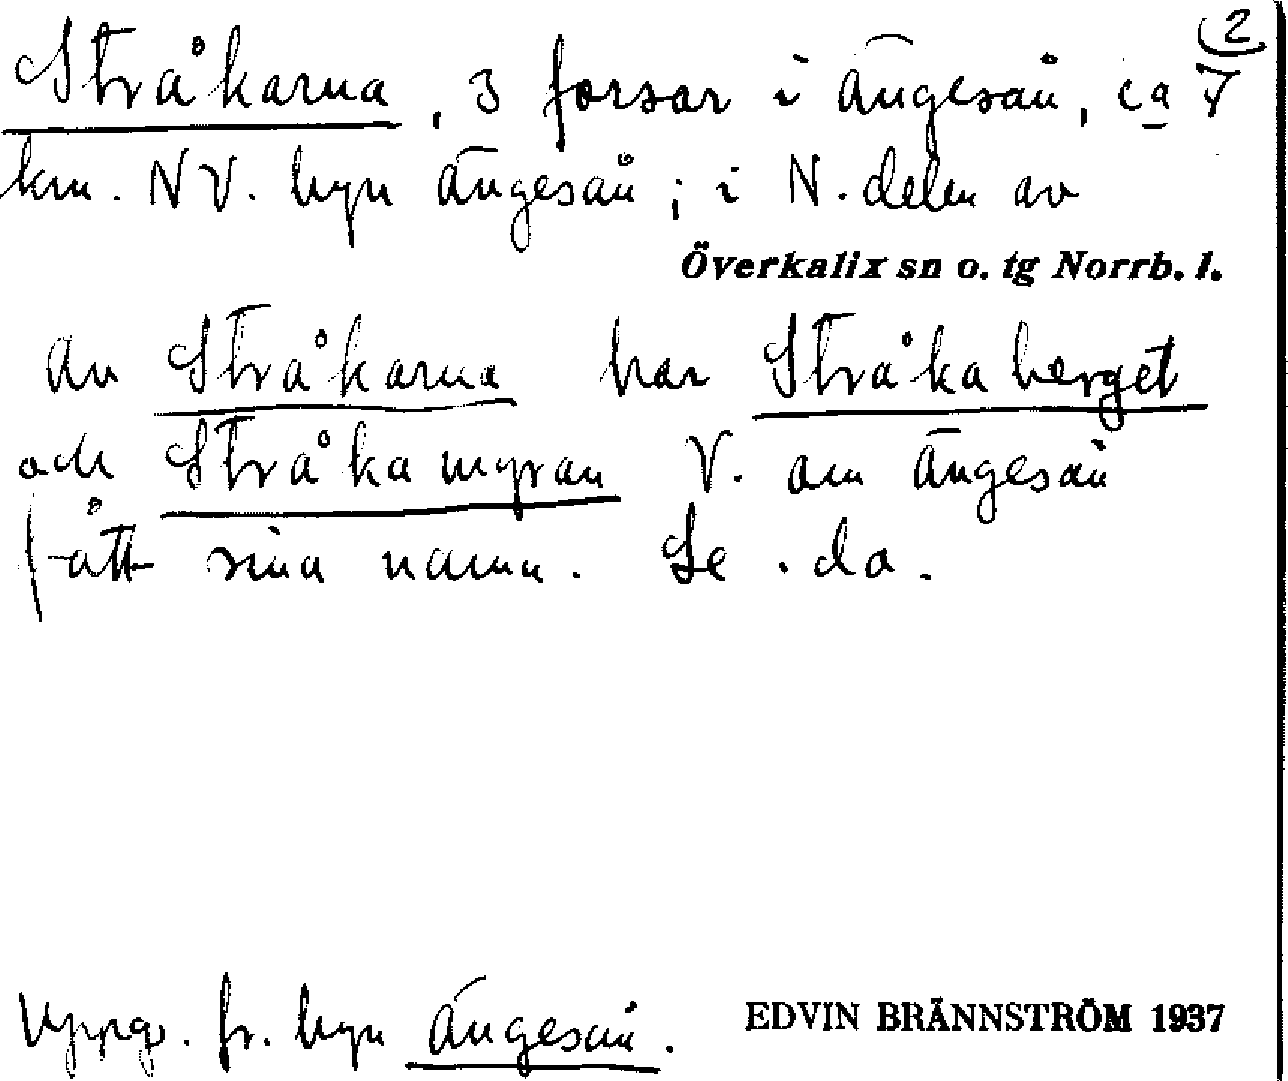 2
Stråkarna, 3 forsar i Ängesån, ca 7
km. NV. byn Ängesån; i N. delen av
Överkalix sn o. tg Norrb. l.
Av Stråkarna har Stråkaberget
och Stråkamyran V. om Ängesån
fått sina namn. Se. da.
Uppg. fr. byn Ängesån.
EDVIN BRÄNNSTRÖM 1937